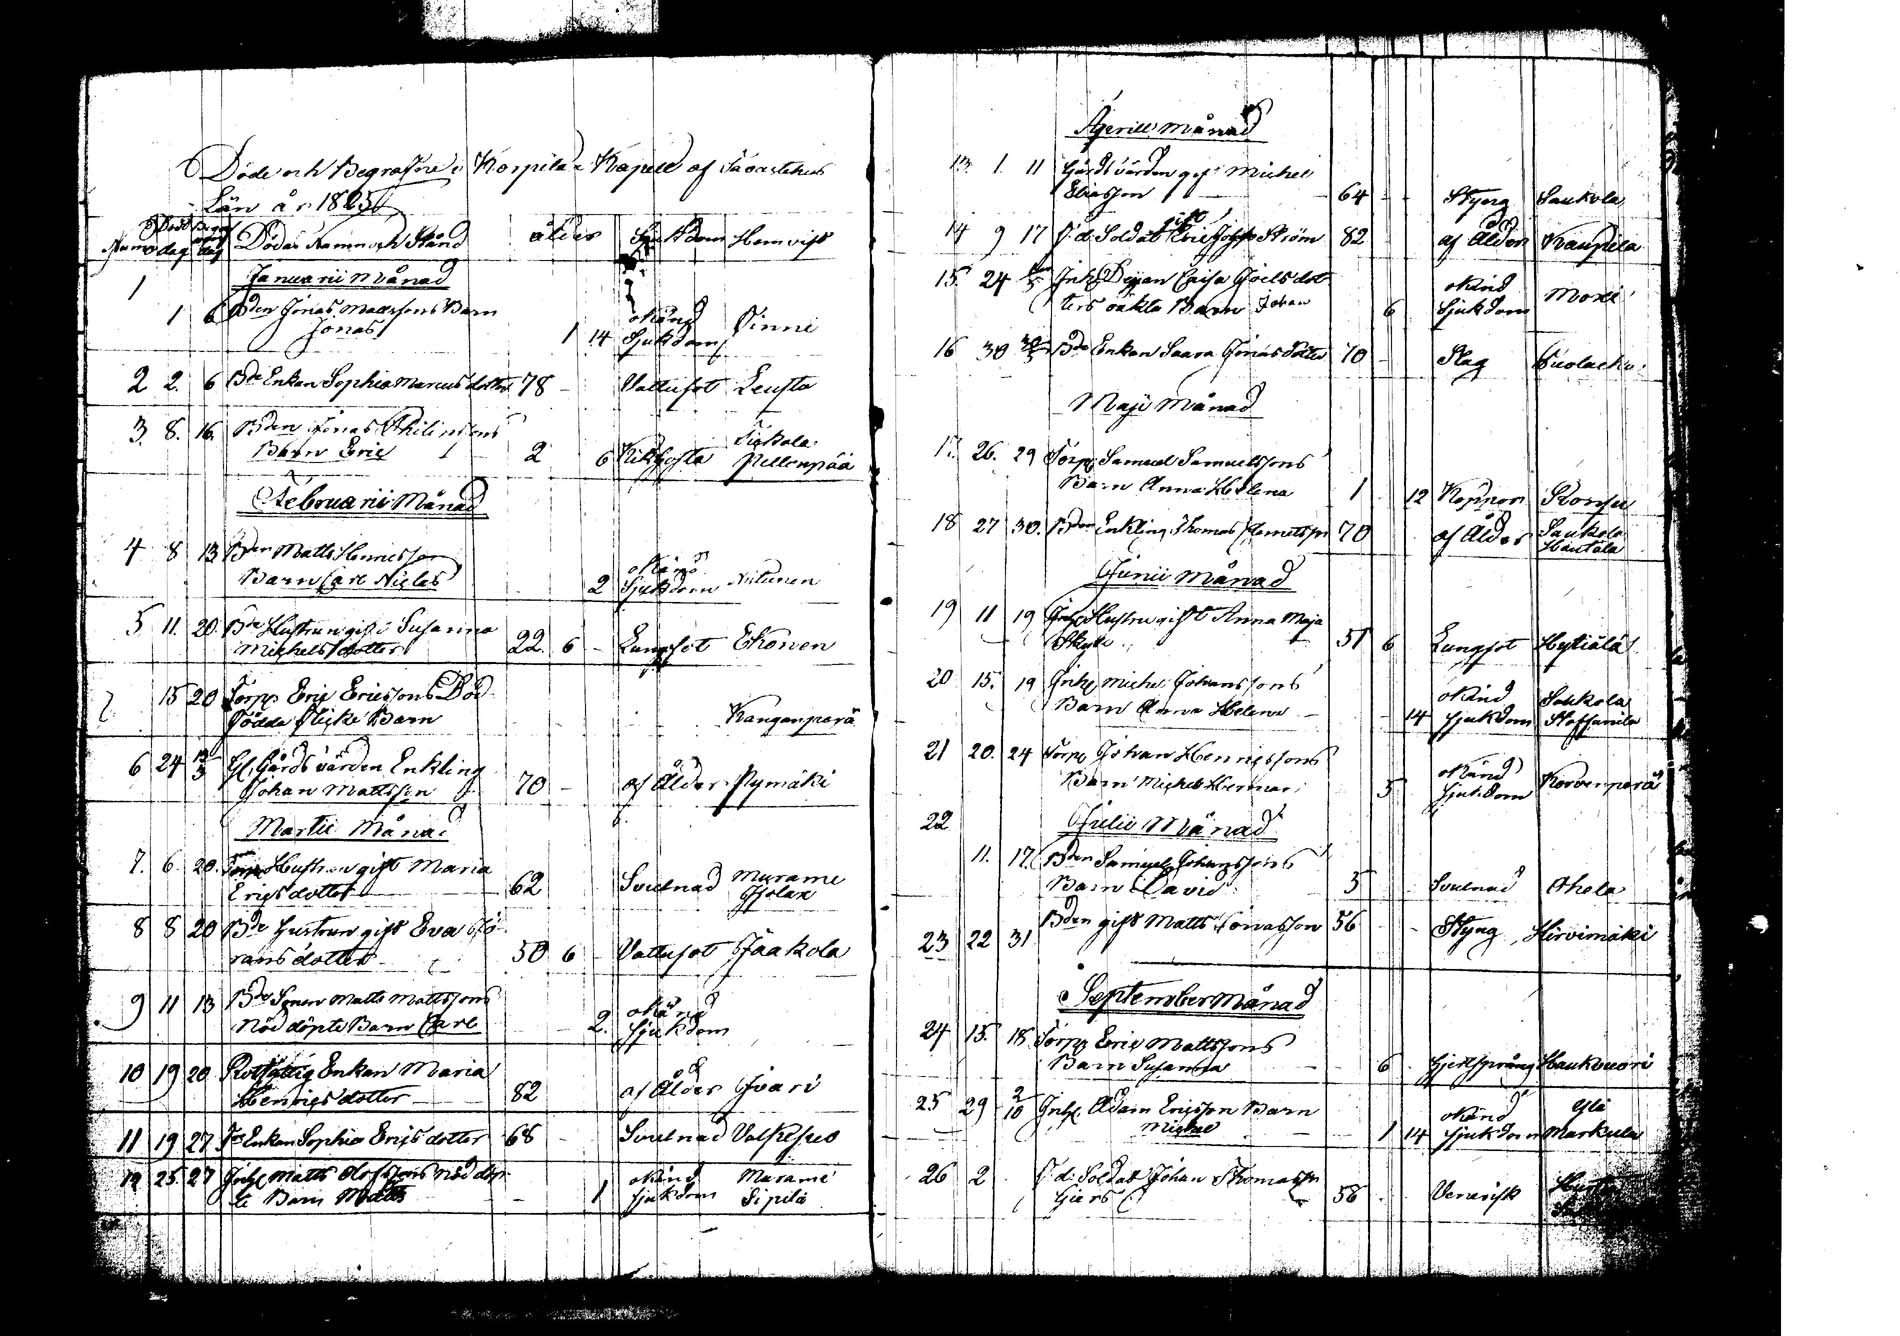 Döde och Begrafne i Korpilax Kapell af Tavastehus
Län år 1825
Num Död dag Begr dag Dödas Namn och Stånd ålder Sjukdom Hemvist
1 Januarii Månad
1 6 Bden Jonas Mattssons Barn
Jonas 1 14 okänd Sjukdom Rinne
2 2. 6 Bde Enkan Sophia Marcusdotter 78 - Vattusot Leusta
3. 8. 16. Bden Jonas Philipssons
Barn Eric 2 6 Kikhosta Tickala Pellonpää
Februarii Månad
4 8 13 Bden Matts Henricsson
Barn Carl Niclas 2 okänd Sjukdom
5 11. 20. Bde Hustrun gift Susanna
Michelsdotter 22. 6 - Lungsot Ekonen
15 20 Torp. Eric Ericssons Död
födda Flicke Barn Kanganperä
6 24 13/3 Gl. Gårdsvärden Enkling
Johan Mattsson 70 - af Ålder Pymäki
Martii Månad
7. 6. 20. Torp Hustrun gift Maria
Ericsdotter 62 Svulnad Murame
8 8 20 Bde Hustrun gift Eva Gö-
ransdotter 50 6 - Vattusot Jaakola
9 11 13 Bde Sonen Matts Mattssons
Nöd döpte Barn Carl 2. okänd Sjukdom
10 19 20 Rotfattig Enkan Maria
Henricsdotter 82 af Ålder Ivari
11 19 27 Enkan Sophia Ericsdotter 68 - Svulnad Valkesuo
12 25. 27 Inh. Matts Olofssons Nöd döp-
te Barn Matts - 1 okänd Sjukdom Murame Sipilä
Aprill månad
13. 1. 11 Gårdsvärden gift Michel
Eliasson 64 - - Styng Saukola
14 9 17 f: d: Soldat gift Eric Ström 82 af Ålder Kauppila
15. 24 Inh. Pigan Caisa Joelsdot-
ters oäkta Barn Johan 6 okänd Sjukdom
16 30 Bde Enkan Saara Jonasdotter 70 - Slag
Maji Månad
17. 26. 29 Torp. Samuel Samuelssons
Barn Anna Helena 1 12 Koppor
18 27 30. Bden Enkling Thomas Clemetsson 70 af Ålder Saukola
Junii Månad
19 11 19 Inh. Hustru gift Anna Maja
51 6 Lungsot Hytiälä
20 15. 19 Inh. Michel Johanssons
Barn Anna Helena - - 14 okänd Sjukdom Saukola
21 20. 24 Torp. Johan Henricssons
Barn Michel Herman 5 okänd Sjukdom Korvenperä
22 Julii Månad
11. 17. Bden Samuel Johanssons
Barn David 5 Svulnad Ahola
23 22 31 Bden gift Matts Jonasson 56 - - Styng Hirvimäki
September Månad
24 15. 18. Torp. Eric Mattssons
Barn Susanna - 6 Haukvuori
25 29 2/10 Inh. Adam Ericsson Barn
Michel - 1 14 okänd Sjukdom Ylä Markula
26 2 f: d: Soldat Johan Thomasson
56 - Venerisk